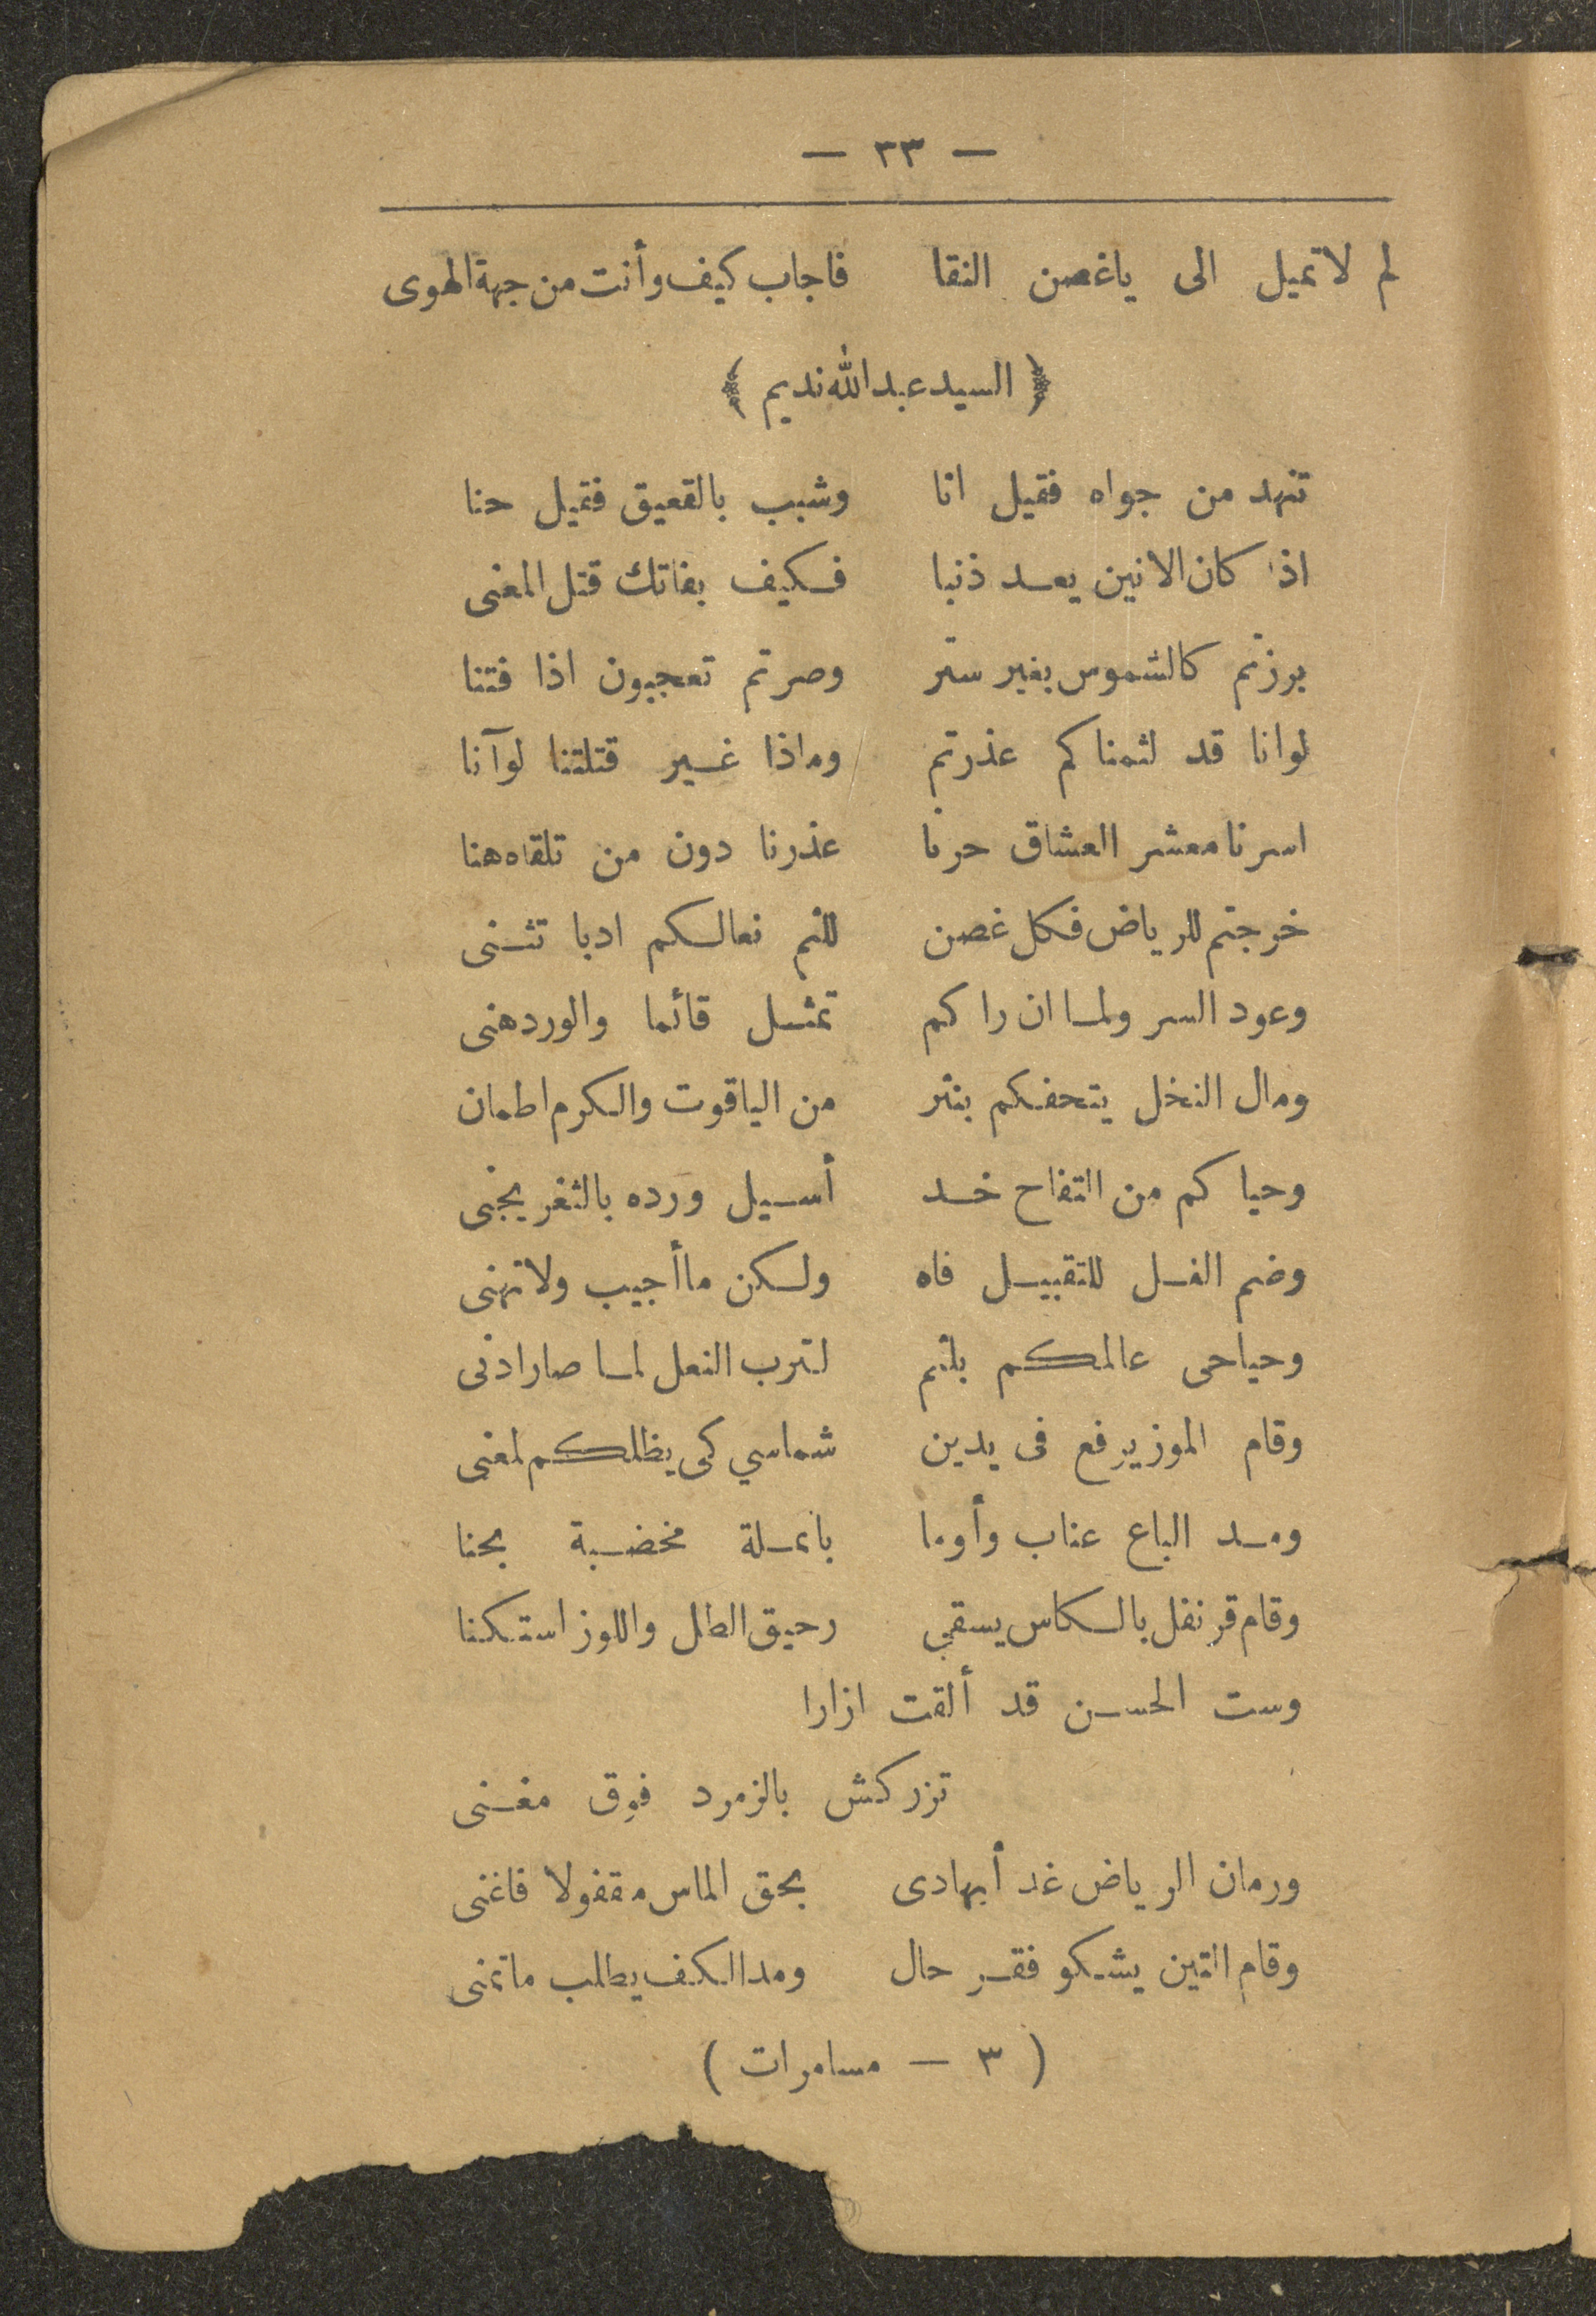 — ٣٣ —
لم لا تميل الى ياغصن النقا فاجاب كيف وأنت من جهة الهوى
﴿ السيد عبد الله نديم ﴾
تنهد من جواه فقيل انا وشبب بالقعيق فقيل حنا
اذا كان الانين يعد ذنبا فكيف بفاتك قتل المغنى
برزتم كالشموس بغير ستر وصرتم تعجبون اذا فتنا
لوانا قد لثمناكم عذرتم وماذا غير قتلتنا لوآنا
اسرنا معشر العشاق حرنا عذرنا دون من تلقاه هنا
خرجتم للرياض فكل غصن للثم نعالكم ادبا تثنى
وعود السر ولما ان راكم تمثل قائما والورد هنى
ومال النخل يتحفكم بنثر من الياقوت والكرم اطمان
وحياكم من التفاح خد أسيل ورده بالثغر يجنى
وضم الفل للتقبيل فاه ولكن ماأجيب ولا تهنى
وحياحى عالمكم بلثم لترب النعل لما صار ادنى
وقام الموز يرفع فى يدين شماسي كى يظلكم لمغنى
ومد الباع عناب وأوما بانملة مخضبة بحنا
وقام قرنفل بالكاس يسقي رحيق الطل واللوز استكنا
وست الحسن قد ألقت ازارا
تزركش بالزمرد فوق مغنى
ورمان الرياض غد أيهادى بحق الماس مقفولا فاغنى
وقام التين يشكو فقر حال ومد الكف يطلب ماتمنى
( ٣ — مسامرات )